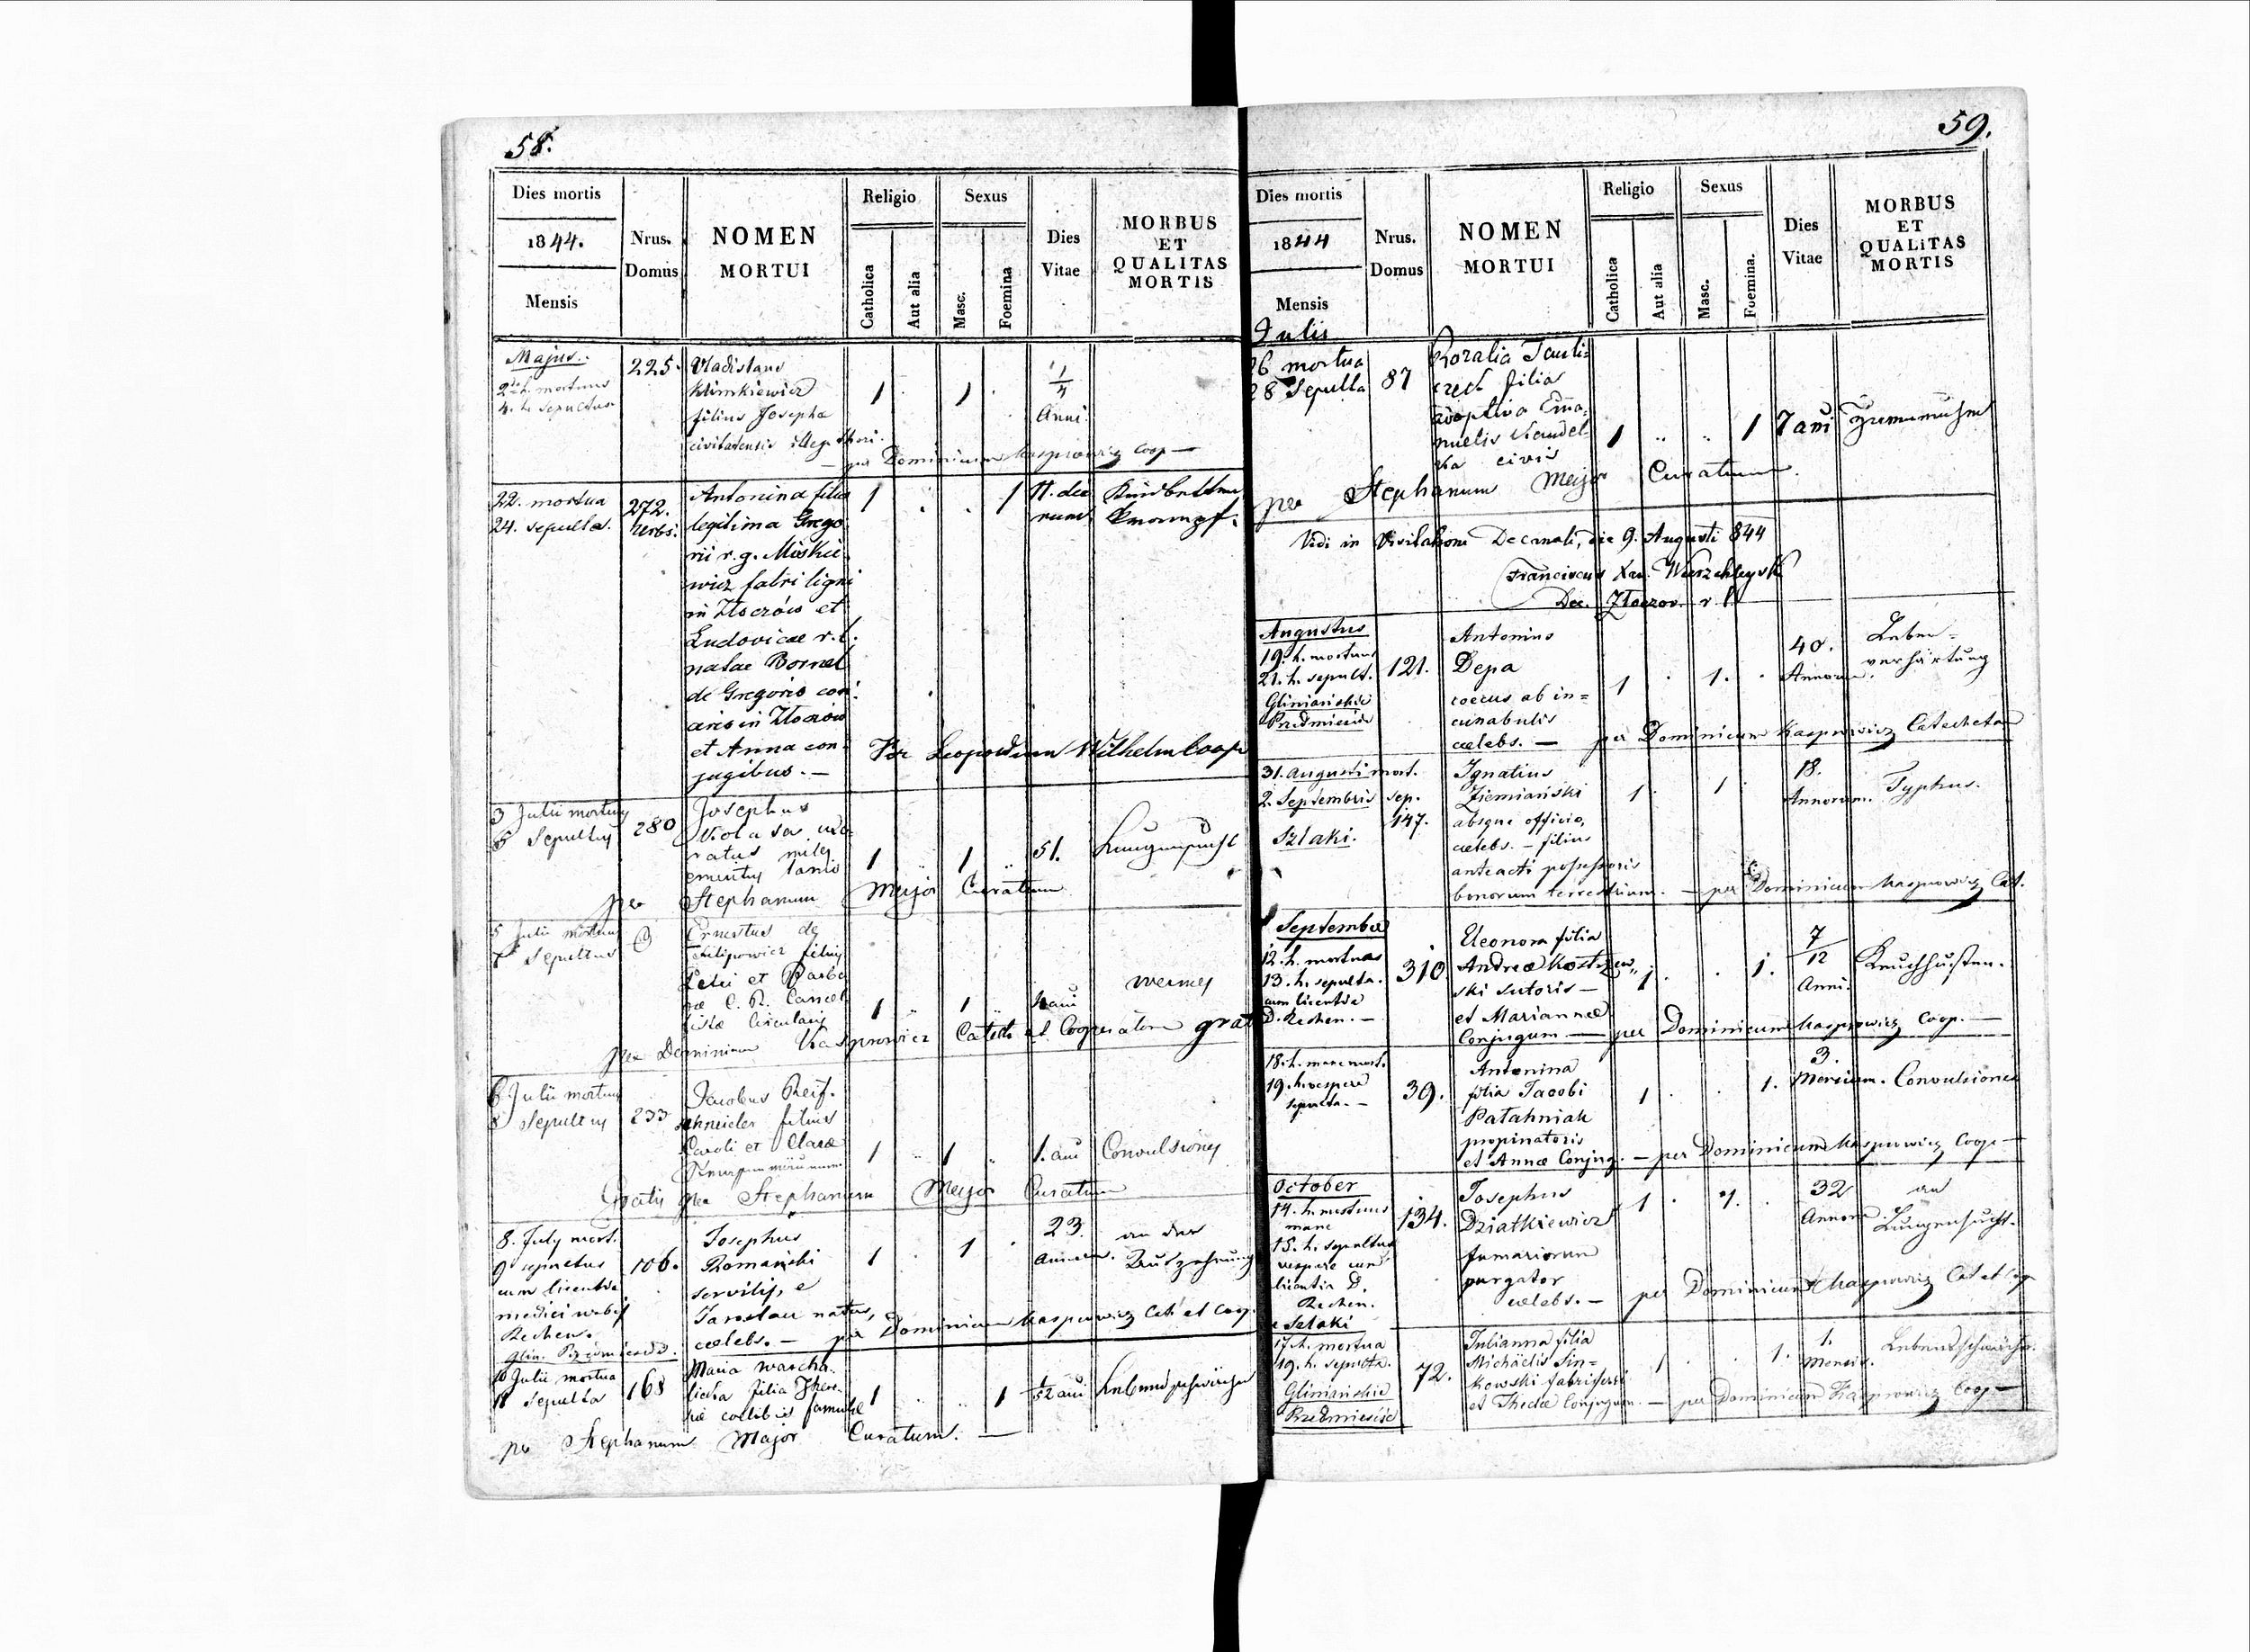 58.
Dies mortis
1844.
Mensis
Nrus.
Domus
NOMEN
MORTUI
Religio
Catholica
Aut alia
Sexus
Masc.
Foemina
Dies
Vitae
MORBUS
ET
QUALITAS
MORTIS
Majus.
2 h. mortuus
4. h. sepultus.
225.
Vladislaus
Klimkiewicz
filius Josepha
civitatensis illeg. thori.
1 . 1 .
1/4
Anni.
— per Dominicum Kasprowicz Coop —
22. mortua
24. sepulta.
272.
Urbs.
Antonina filia
legitima Grego
rii r. g. Miskie
wicz fabri ligni
in Złoczów et
Ludovicae r. l.
natae Bornel
de Gregorio
in Złoczów
et Anna con
jugibus. —
1 . . 1
11. die
rum
Kindbetten
Krampf.
Per Leopoldum Wilhelm Coop
3 Julii mortuus
5 Sepultus
280
Josephus
miles
emeritus
1 .. 1 ..
51.
Lungensucht
per Stephanum Mejor Curatum
5 Julii mortuus
7 Sepultus
Ernestus de
Filipowicz filius
Felici et Barba
rae C. R. Cancel
listae Circularis
1 .. 1 ..
per Dominicum Kasprowicz Catech et Cooperatorem gratis
6 Julii mortuus
8 Sepultus
233
Jacobus Reif-
schneider filius
Caroli et Clarae
1 .. 1 ..
1. ani
Convulsiones
Gratis per Stephanum Mejor Curatum
8. July mort.
9 sepultus
cum licentia
medici
Rechen.
Glin. Przedmieście.
106.
Josephus
Romański
servilis, e
Jaroslau natus,
caelebs. —
1 . 1 .
23.
Annorum.
an der
Auszehrung
per Dominicum Kasprowicz Cat et Coop.
10 Julii mortua
11 Sepulta
168
Maria Warcha-
licha filia There-
siae caelibis famulae
1 .. .. 1
1/52 ani
Lebensschwäche
per Stephanum Major Curatum. —
59.
Dies mortis
1844
Mensis
Nrus.
Domus
NOMEN
MORTUI
Religio
Catholica
Aut alia
Sexus
Masc.
Foemina.
Dies
Vitae
MORBUS
ET
QUALITAS
MORTIS
Julis
26 mortua
28 Sepulta
87
Rozalia
filia
adoptiva Ema-
nuelis
civis
1 .. .. 1
7 ani
per Stephanum Mejor Curatum.
Vidi in Visitatione Decanali, die 9. Augusti 844
Franciscus Xav. Wierzchleyski
Dec. Złoczov. r. l.
Augustus
19. h. mortuus
21. h. sepult.
Gliniańskie
Przedmieście
121.
Antonius
Depa
coecus ab in-
cunabulis
caelebs. —
1 . 1. .
40.
Annorum.
Leber-
verhärtung
per Dominicum Kasprowicz Catechetam
31. Augusti mort.
2. Septembris sep.
Szlaki.
147.
Ignatius
Ziemiański
absque officio,
caelebs. — filius
anteacti possessoris
bonorum terrestrium.
1 . 1 .
18.
Annorum.
Typhus.
— per Dominicum Kasprowicz Cat.
September
12. h. mortua
13. h. sepulta.
cum licentia
D. Rechen. —
310
Eleonora filia
Andreae Kostrzew-
ski sutoris —
et Mariannae
Conjugum —
1 . . 1.
7/12
Anni.
Keuchhusten.
per Dominicum Kasprowicz Coop. —
18. h. mane mort.
19. h. vespere
sepulta. —
39.
Antonina
filia Jacobi
Patahniak
propinatoris
et Annae Conjug.
1 . . 1.
3.
Mensium.
Convulsiones
— per Dominicum Kasprowicz Coop —
October
14. h. mortuus
mane
15. h. sepultus
vespere cum
licentia D.
Rechen.
e Szlaki
134.
Josephus
Dziatkiewicz
fumariorum
purgator
caelebs. —
1 . 1. .
32
Annorum.
an
Lungensucht.
per Dominicum Kasprowicz Cat et Coop
17. h. mortua
19. h. sepulta.
Gliniańskie
Przedmieście
72.
Julianna filia
Michaelis Sin-
kowski fabriferri
et Theclae Conjugum.
1 . . 1.
1.
Mensis.
Lebensschwäche.
— per Dominicum Kasprowicz Coop —